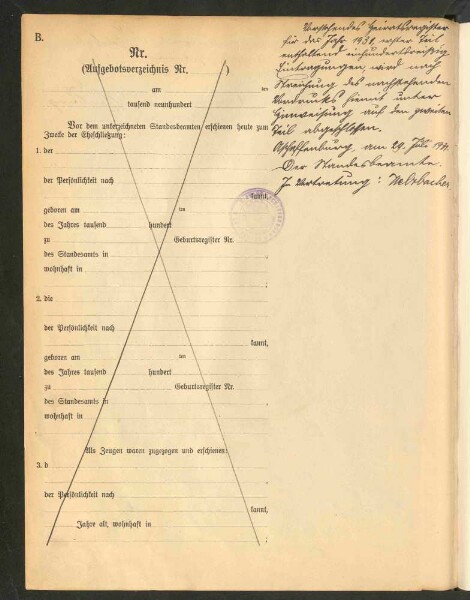 B.
Nr.
(Aufgebotsverzeichnis Nr. )
am ten
tausend neunhundert
Vor dem unterzeichneten Standesbeamten erschienen heute zum
Zwecke der Eheschließung:
1. der
der Persönlichkeit nach
kannt,
geboren am ten
des Jahres tausend hundert
zu Geburtsregister Nr.
des Standesamts in
wohnhaft in
;
2. die
der Persönlichkeit nach
kannt,
geboren am ten
des Jahres tausend hundert
zu Geburtsregister Nr.
des Standesamts in
wohnhaft in
;
Als Zeugen waren zugezogen und erschienen:
3. d
der Persönlichkeit nach
kannt,
Jahre alt, wohnhaft in
;
Vorstehendes Heiratsregister
für das Jahr 1931, erster Teil
enthaltend einhundertdreißig
Eintragungen wird nach
Streichung des nachstehenden
Vordrucks hiemit unter
Hinweisung auf den zweiten
Teil abgeschlossen.
Aschaffenburg, am 29. Juli 1931.
Der Standesbeamte.
In Vertretung: Welzbacher